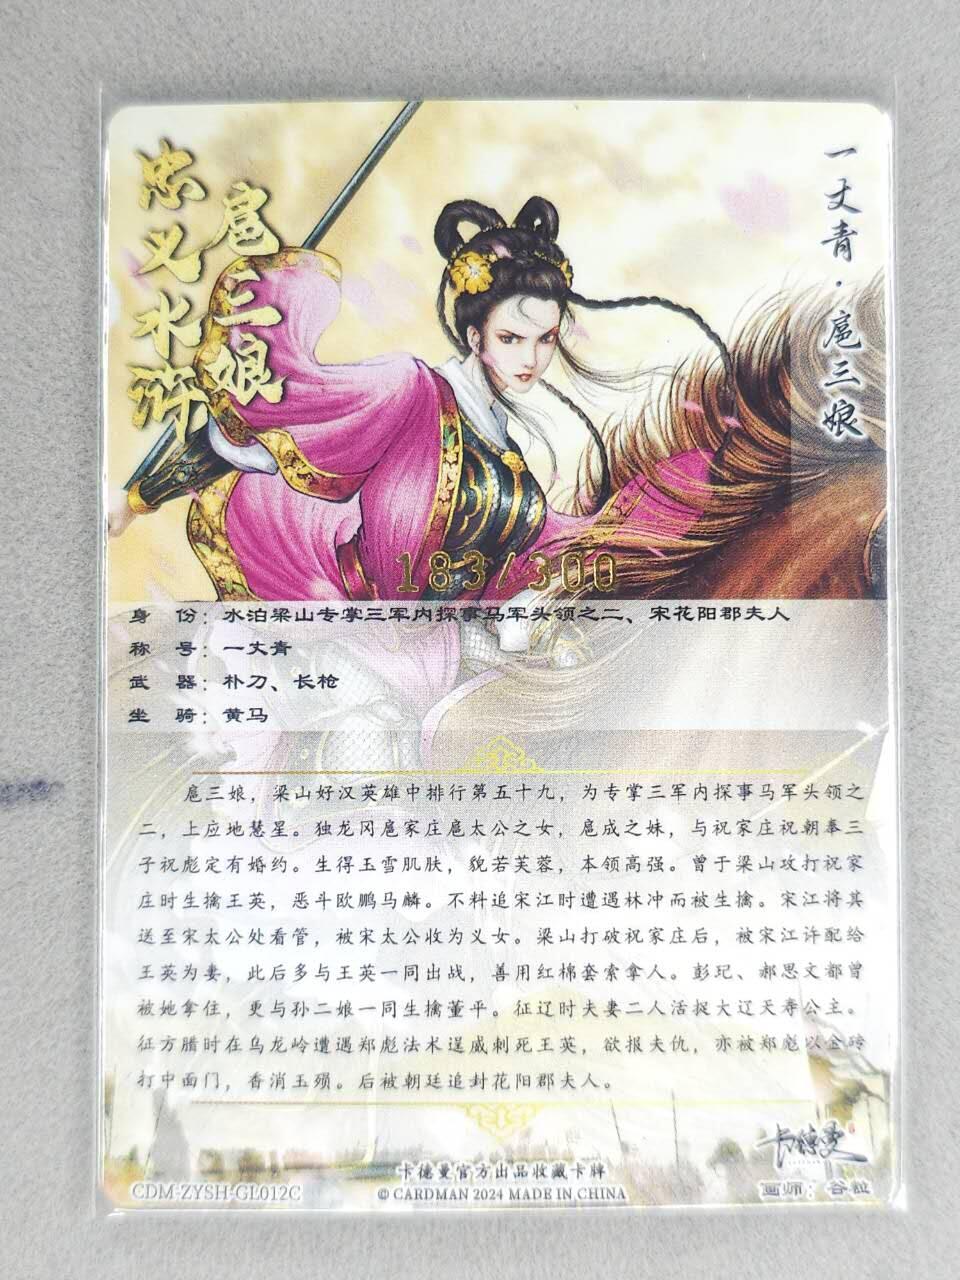 忠义水浒
扈三娘
一丈青·扈三娘
183/300
身 份：水泊梁山专掌三军内探事马军头领之二、宋花阳郡夫人
称 号：一丈青
武 器：朴刀、长枪
坐 骑：黄马
扈三娘，梁山好汉英雄中排行第五十九，为专掌三军内探事马军头领之
二，上应地慧星。独龙冈扈家庄扈太公之女，扈成之妹，与祝家庄祝朝奉三
子祝彪定有婚约。生得玉雪肌肤，貌若芙蓉，本领高强。曾于梁山攻打祝家
庄时生擒王英，恶斗欧鹏马麟。不料追宋江时遭遇林冲而被生擒。宋江将其
送至宋太公处看管，被宋太公收为义女。梁山打破祝家庄后，被宋江许配给
王英为妻，此后多与王英一同出战，善用红棉套索拿人。彭玘、郝思文都曾
被她拿住，更与孙二娘一同生擒董平。征辽时夫妻二人活捉大辽天寿公主。
征方腊时在乌龙岭遭遇郑彪法术逞威刺死王英，欲报夫仇，亦被郑彪以金砖
打中面门，香消玉殒。后被朝廷追封花阳郡夫人。
卡德曼
卡德曼官方出品收藏卡牌
CDM-ZYSH-GL012C
© CARDMAN 2024 MADE IN CHINA
画师：谷粒